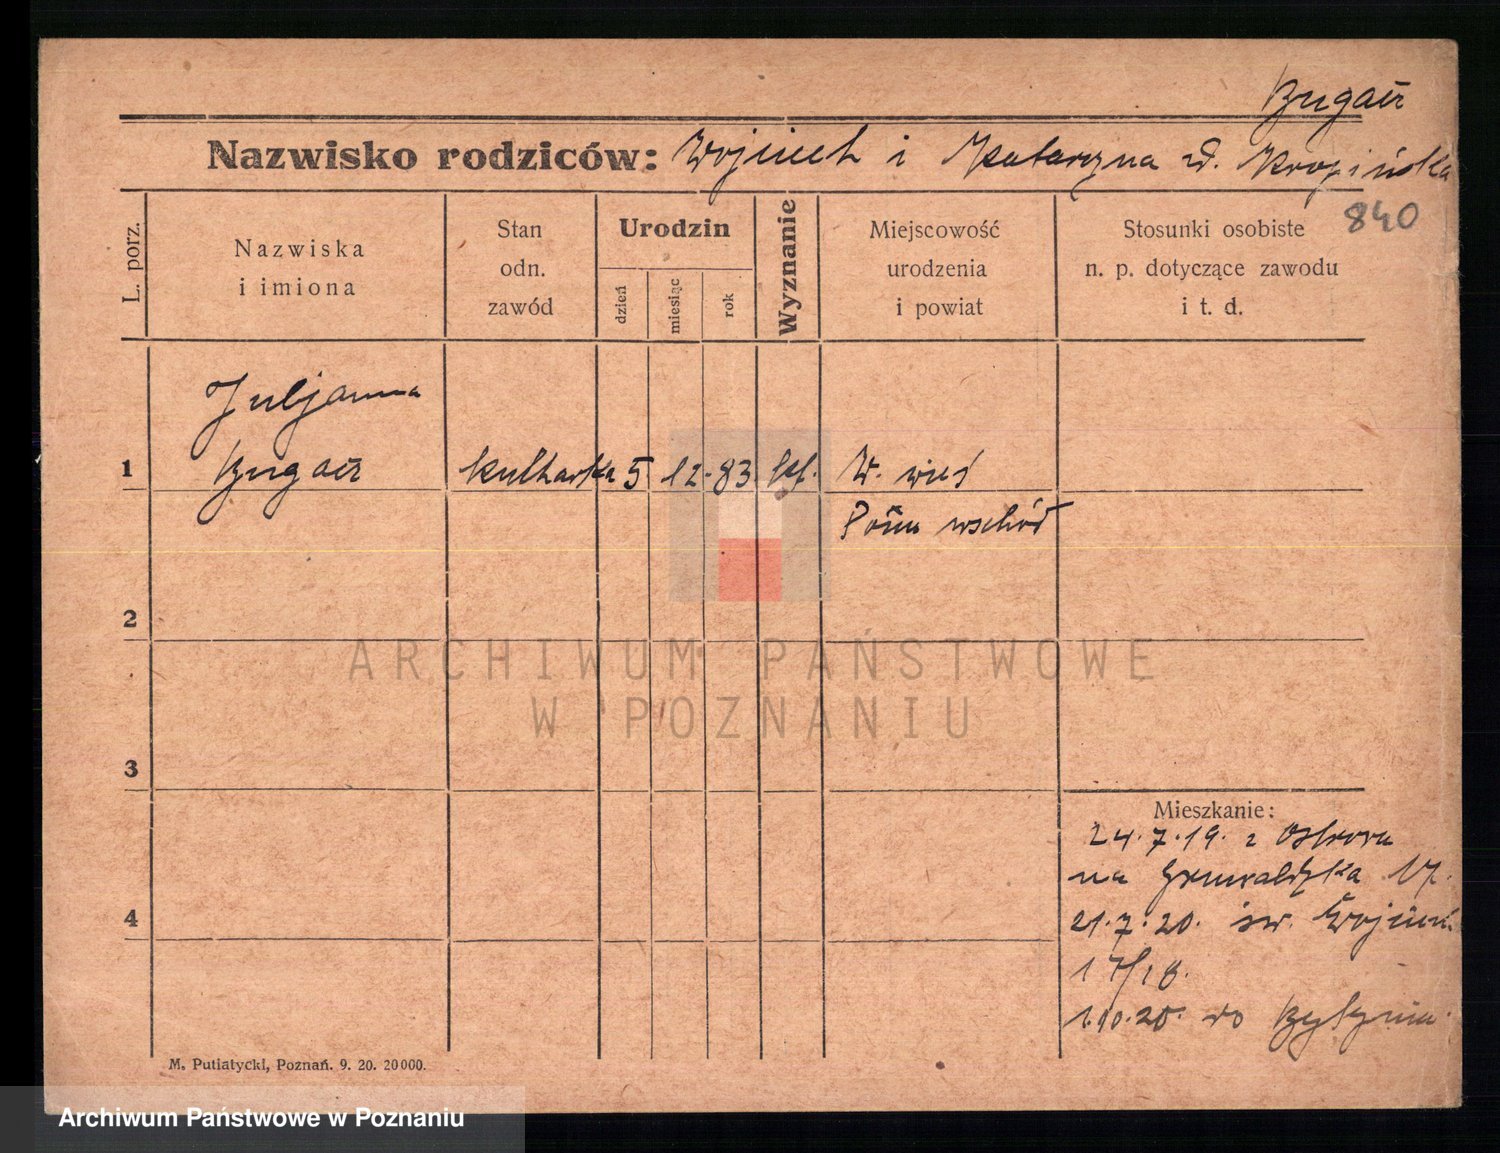 Bugaer
Nazwisko rodziców: Wojciech i Katarzyna z d. Kropińska
840
L. porz.
Nazwiska
i imiona
Stan
odn.
zawód
Urodzin
dzień
miesiąc
rok
Wyznanie
Miejscowość
urodzenia
i powiat
Stosunki osobiste
n. p. dotyczące zawodu
i t. d.
Juljanna
1 Bugaer kucharka 5 12. 83. kt. W. wieś
Pozn wschód
2
3
4
Mieszkanie:
24.7.19. z Ostrowa
na Grunwaldzka 17.
21.7.20. św. Wojciech
17/18.
1.10.20. do Bytynia.
M. Putiatycki, Poznań. 9. 20. 20000.
ARCHIWUM PAŃSTWOWE
W POZNANIU
Archiwum Państwowe w Poznaniu